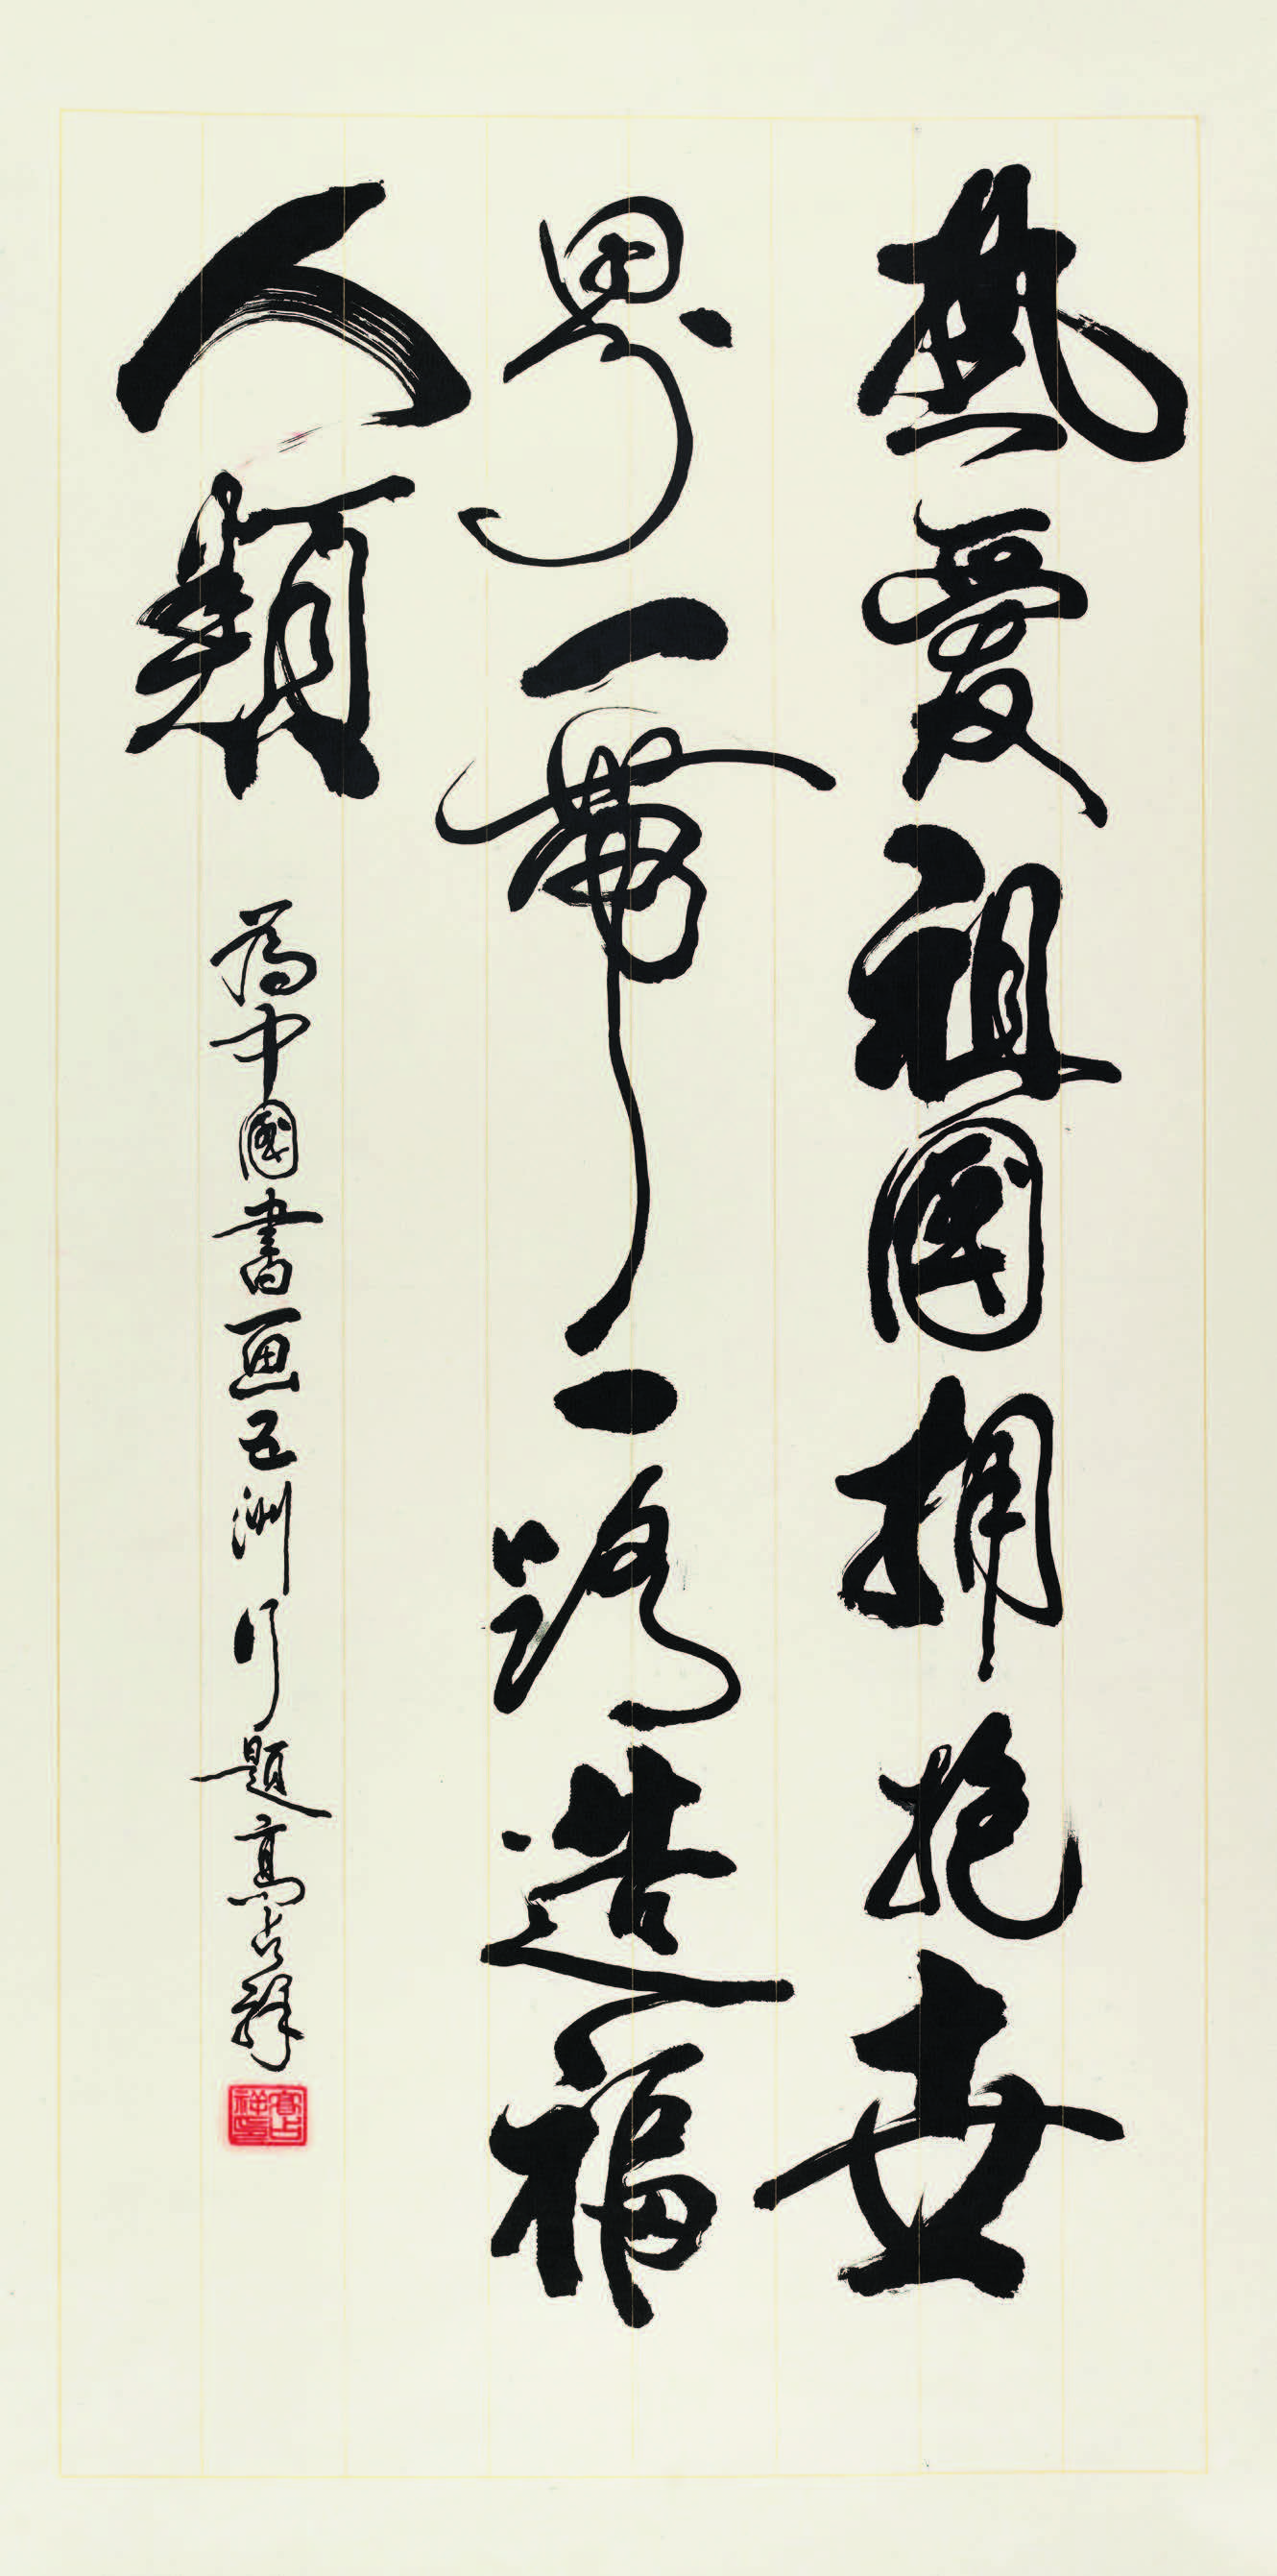 熱愛祖國擁抱世
界一帶一路造福
人類
為中國書畫五洲行題高占祥
高占祥印